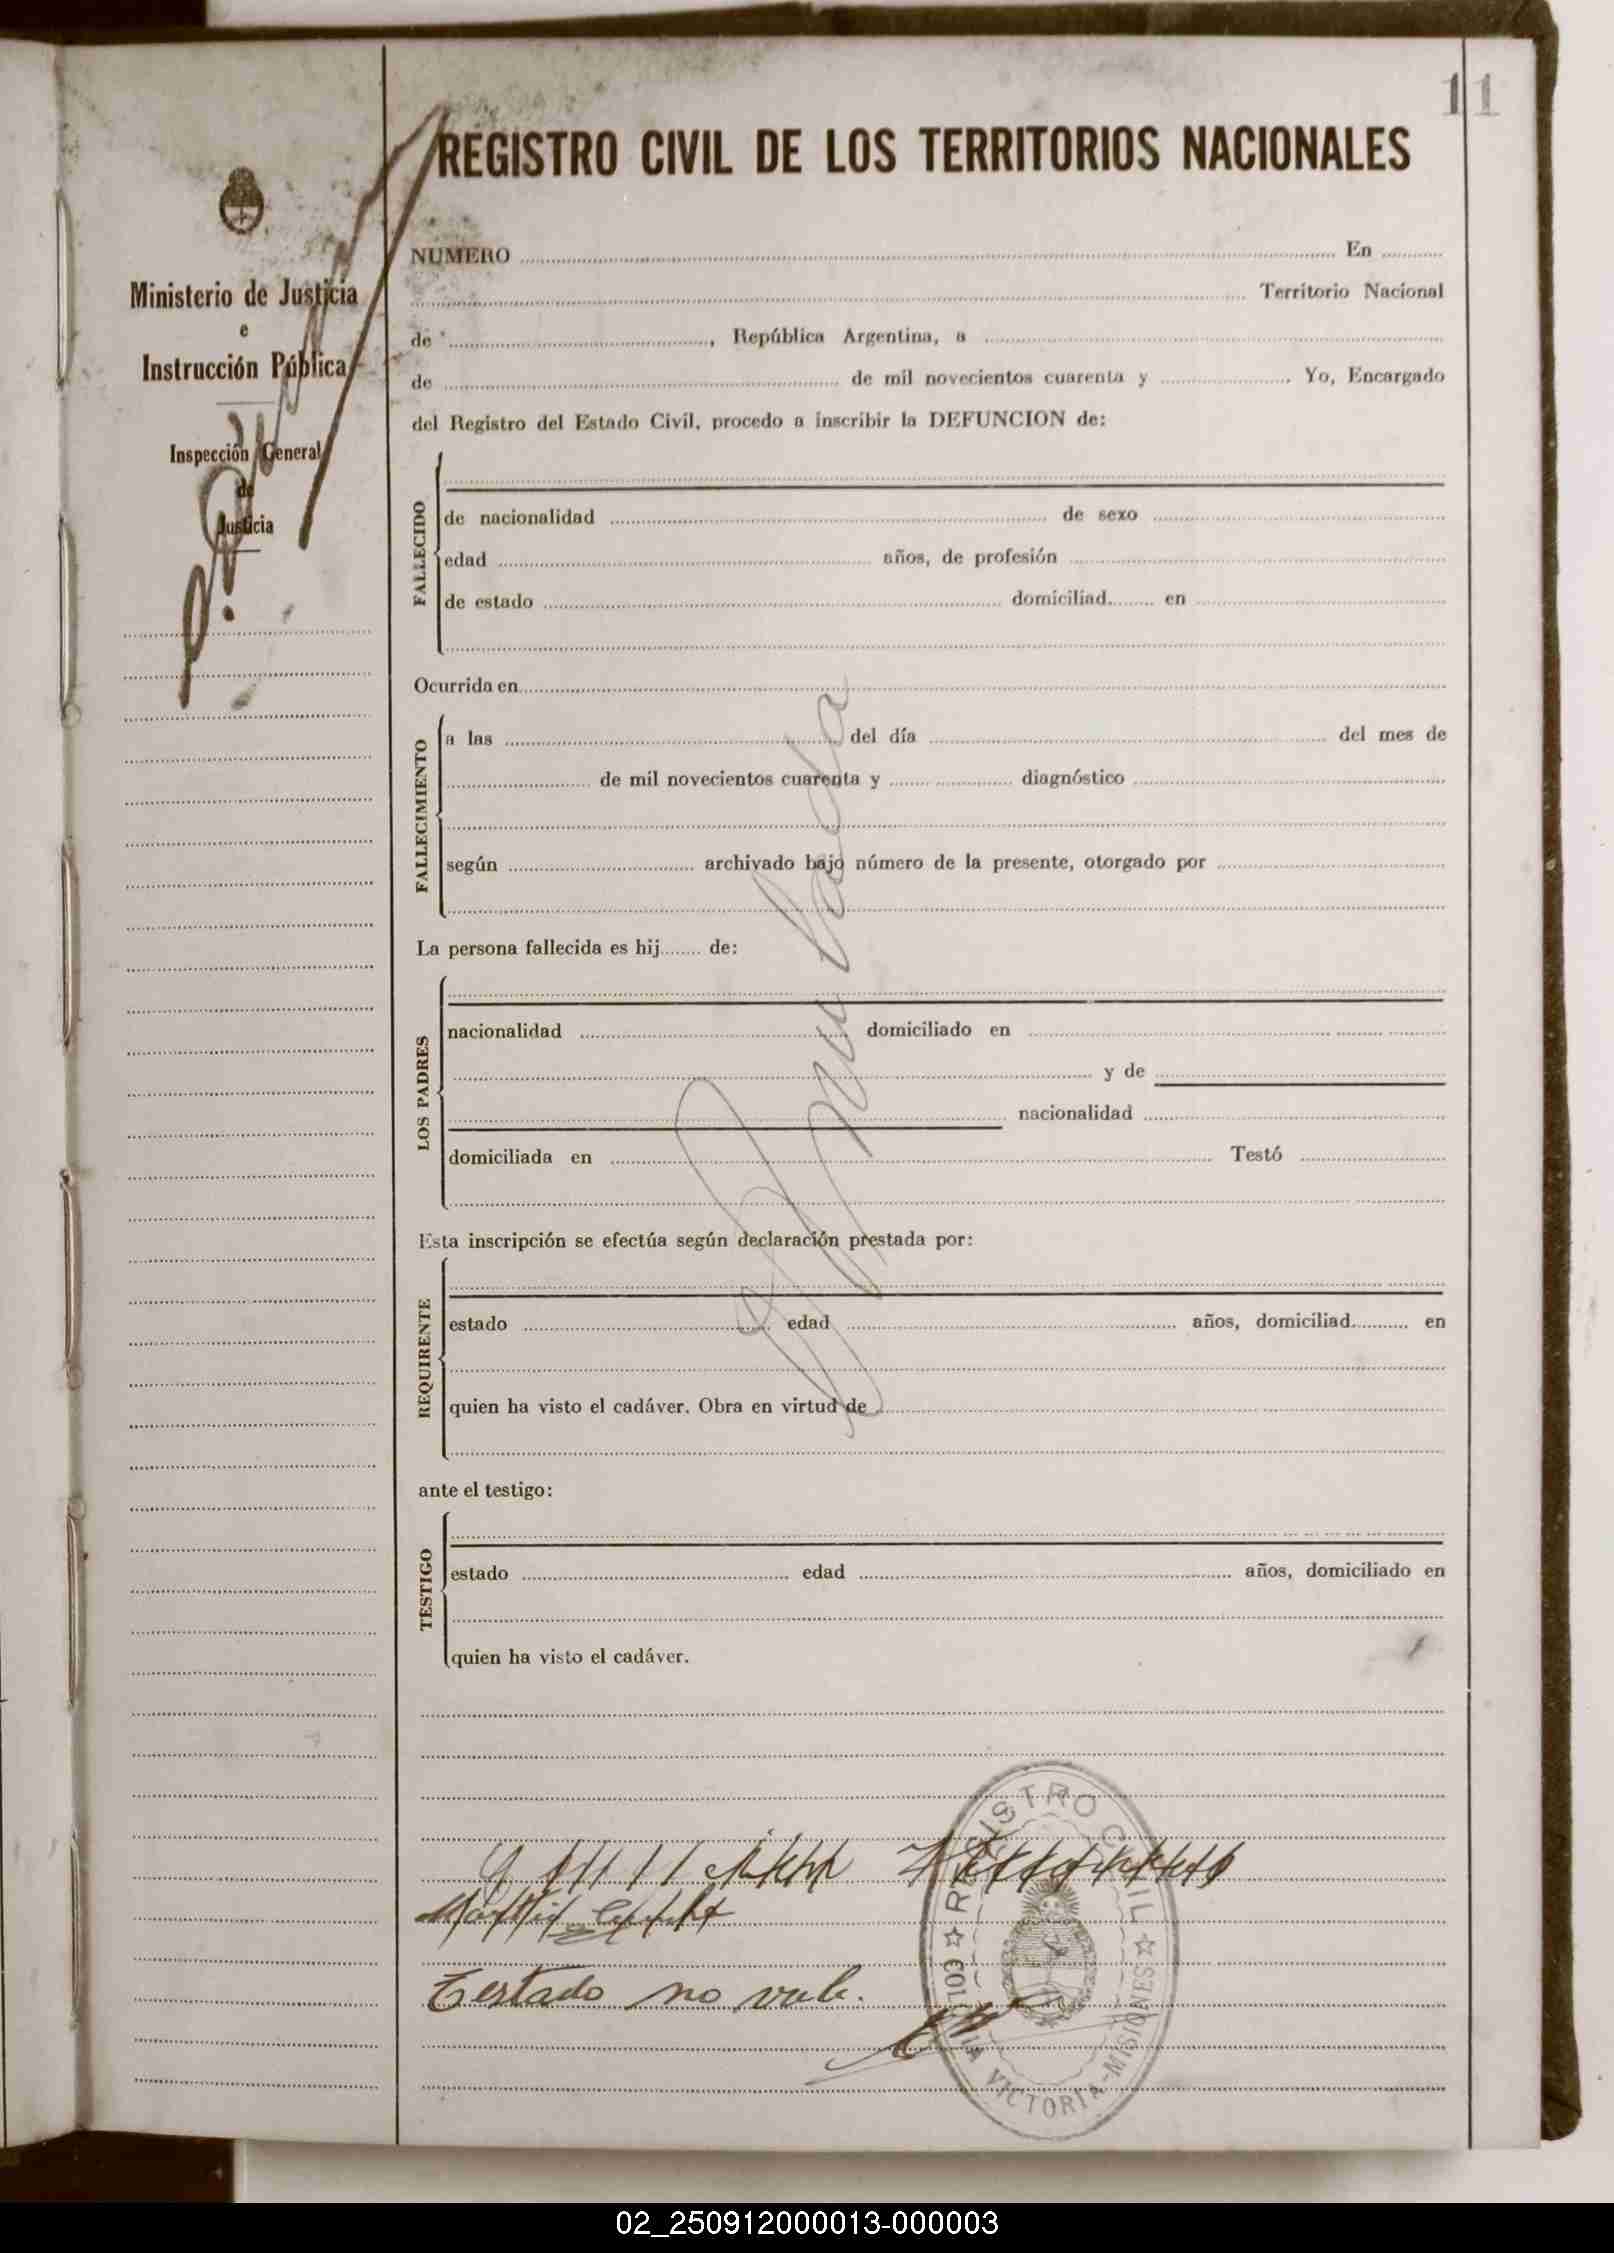 11
REGISTRO CIVIL DE LOS TERRITORIOS NACIONALES
Ministerio de Justicia
e
Instrucción Pública
Inspección General
de
Justicia
NUMERO ........ En ........
........ Territorio Nacional
de ........, República Argentina, a ........
de ........ de mil novecientos cuarenta y ........ Yo, Encargado
del Registro del Estado Civil, procedo a inscribir la DEFUNCION de:
FALLECIDO
de nacionalidad ........ de sexo ........
edad ........ años, de profesión ........
de estado ........ domiciliad........ en ........
Ocurrida en........
FALLECIMIENTO
a las ........ del día ........ del mes de
........ de mil novecientos cuarenta y ........ diagnóstico ........
según ........ archivado bajo número de la presente, otorgado por ........
La persona fallecida es hij........ de:
LOS PADRES
nacionalidad ........ domiciliado en ........
........ y de ........
........ nacionalidad ........
domiciliada en ........ Testó ........
Esta inscripción se efectúa según declaración prestada por:
REQUIRENTE
estado ........ edad ........ años, domiciliad........ en
quien ha visto el cadáver. Obra en virtud de ........
ante el testigo:
TESTIGO
estado ........ edad ........ años, domiciliado en
quien ha visto el cadáver.
Anulada
Testado no vale.
REGISTRO CIVIL
COLONIA VICTORIA-MISIONES
02_250912000013-000003